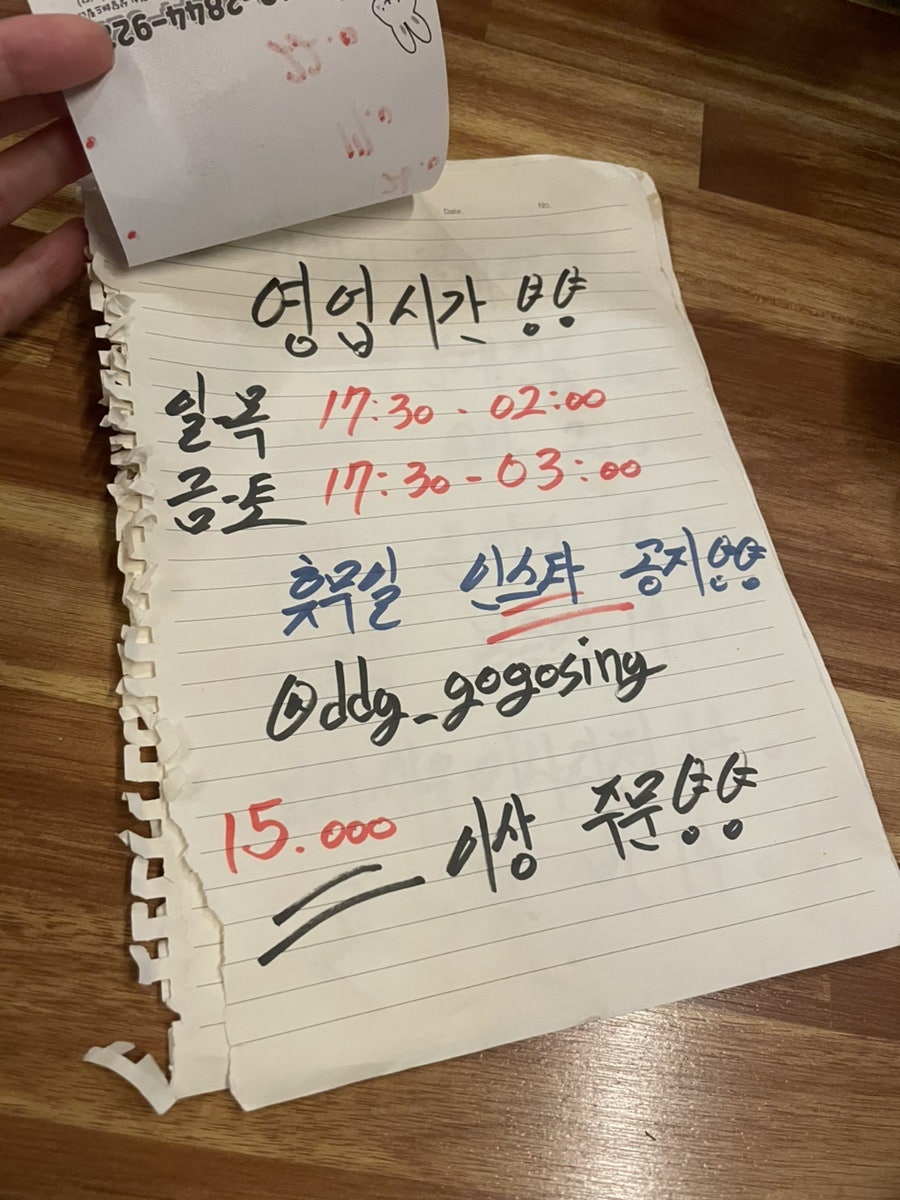 2844-92
Date. No.
영업시간 뿅뿅
일-목 17:30 - 02:00
금-토 17:30 - 03:00
휴무일 인스타 공지뿅뿅
@ddg_gogosing
15.000 이상 주문뿅뿅